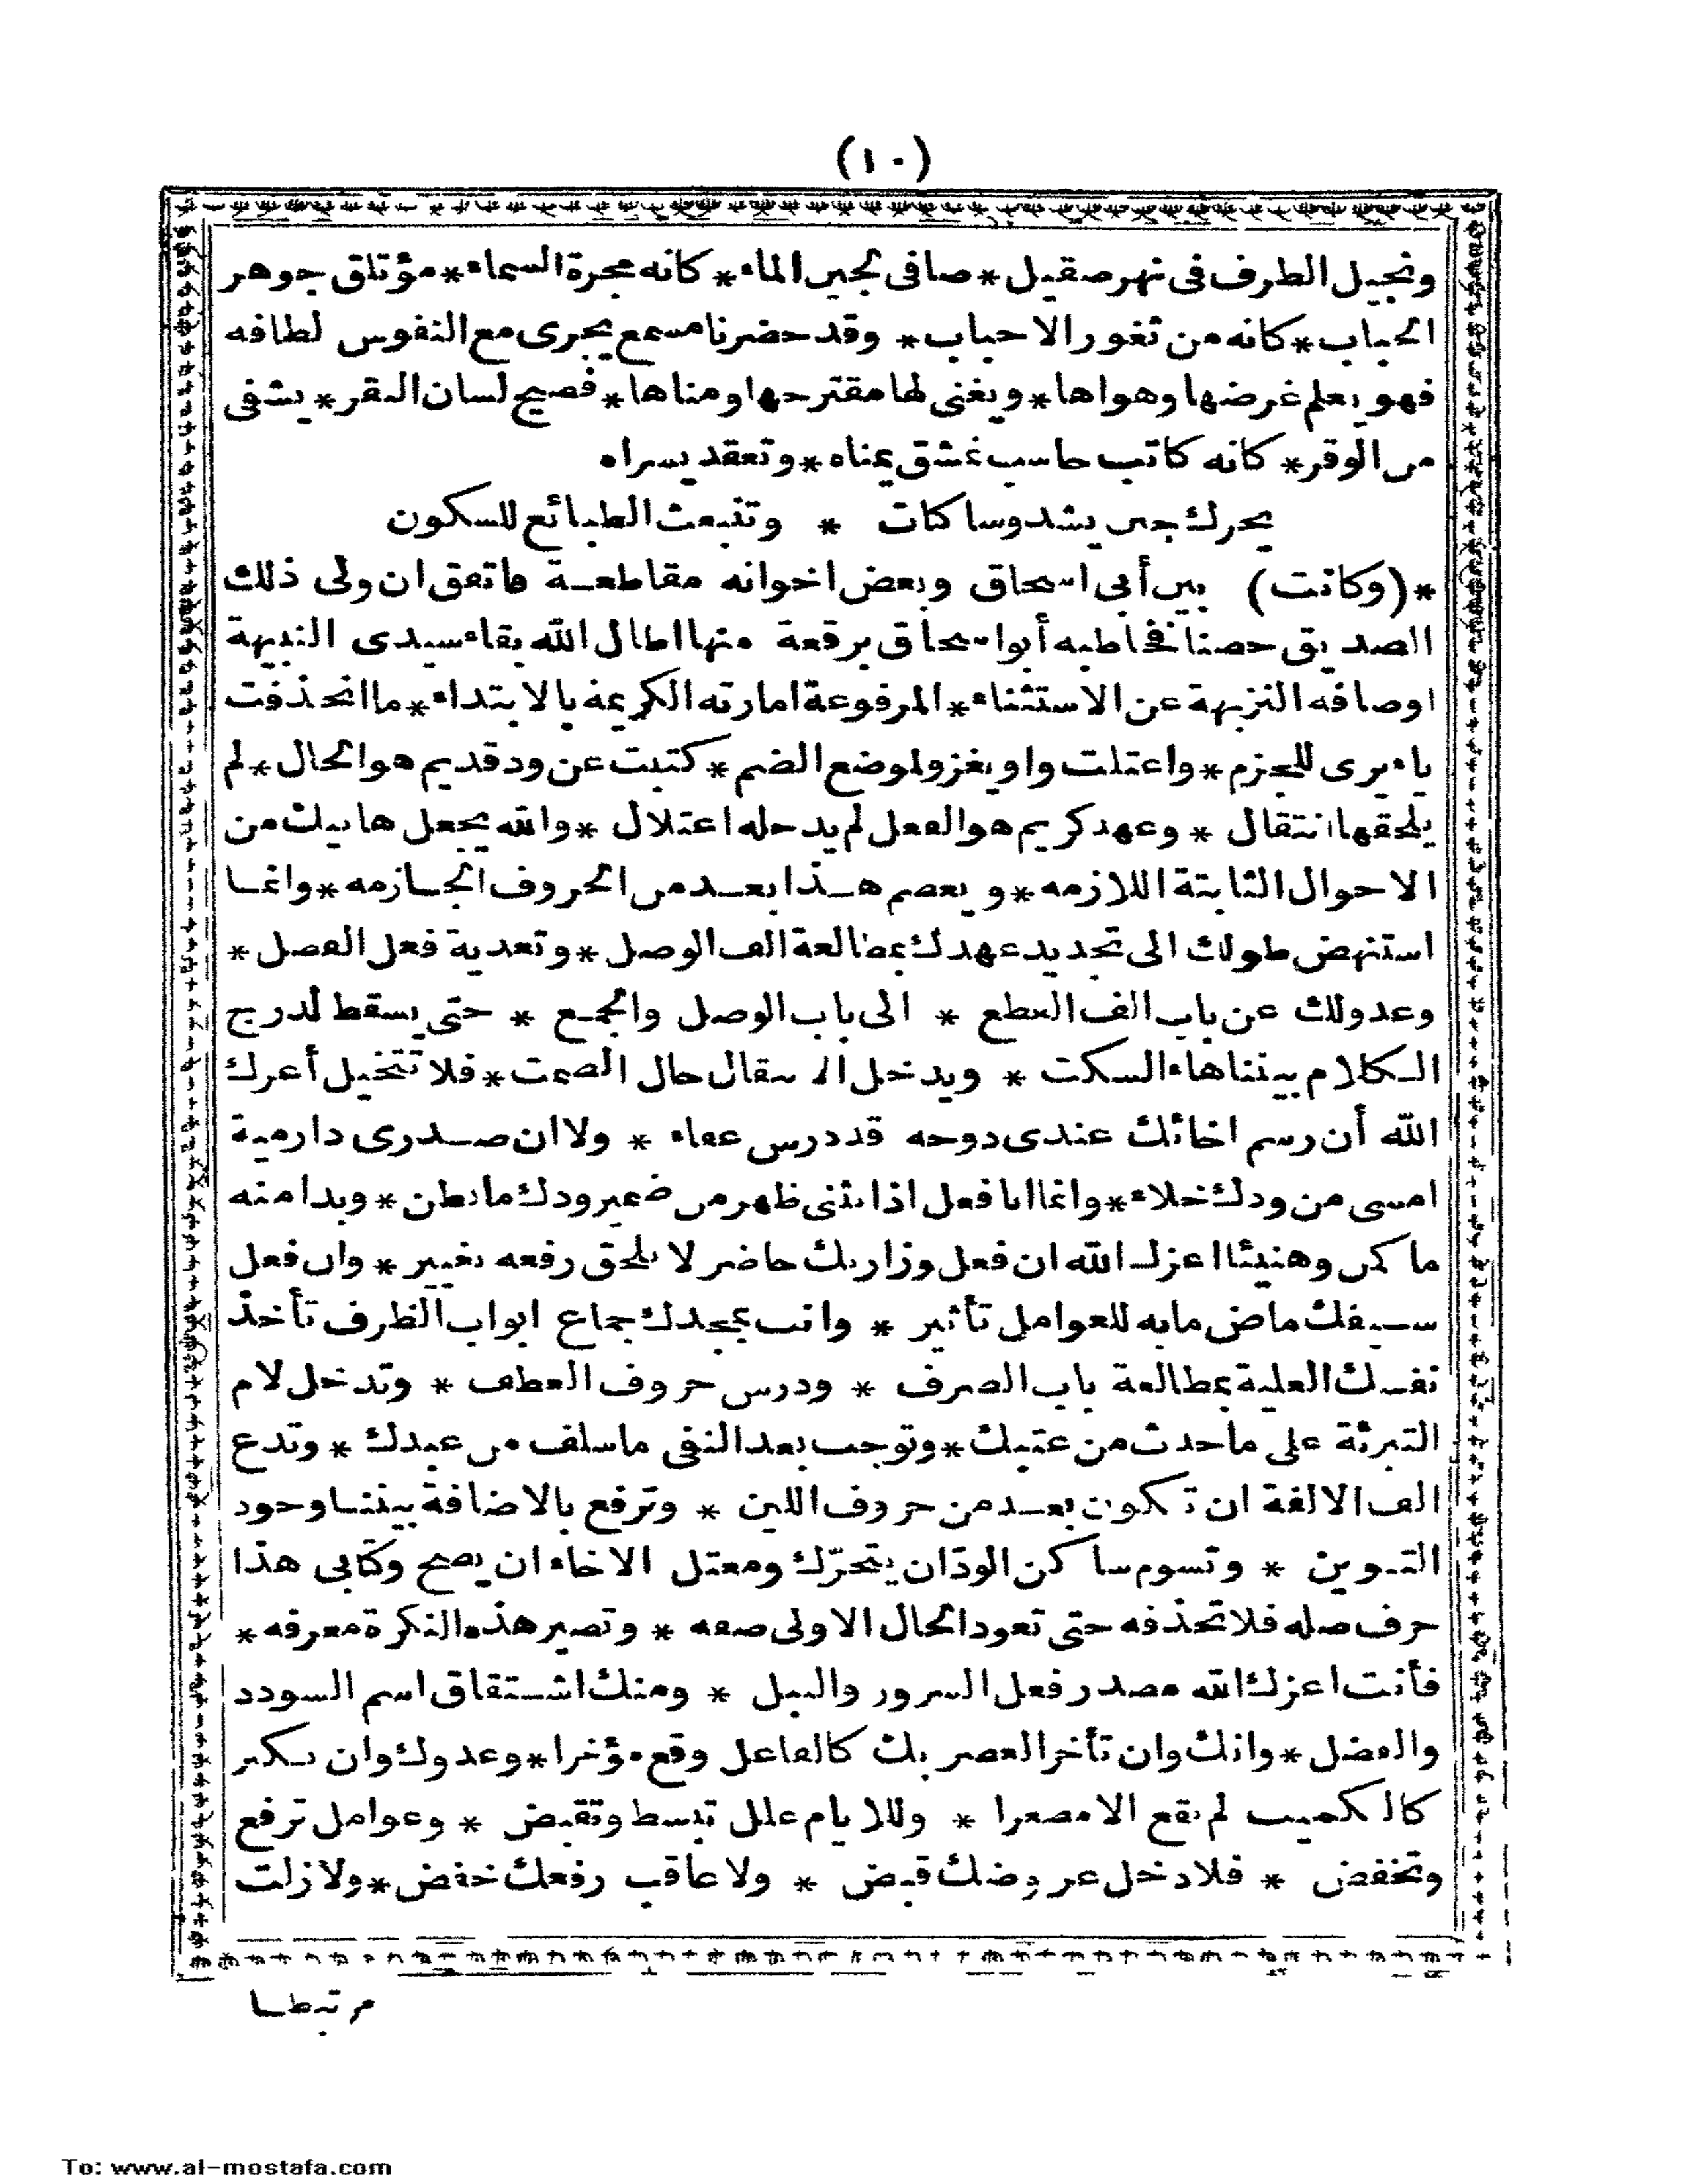 (١٠)
ونجيل الطرف فى نهر صقيل * صافى لجين الماء * كانه مجرة السماء * مؤتلق جوهر
الحباب * كانه من ثغور الاحباب * وقد حضرنا مسمع يجرى مع النفوس لطافه
فهو يعلم غرضها وهواها * ويغنى لها مقترحها ومناها * فصيح لسان النقر * يشفى
من الوقر * كانه كاتب حاسب تمشق يمناه * وتعقد يسراه
يحرك حين يشدو ساكنات * وتنبعث الطبائع للسكون
* (وكانت) بين أبى اسحاق وبعض اخوانه مقاطعة فاتفق ان ولى ذلك
الصديق حصنا فخاطبه أبو اسحاق برقعة منها اطال الله بقاء سيدى النبيهة
اوصافه النزيهة عن الاستثناء * المرفوعة امارته الكريمة بالابتداء * ما انحذفت
ياء يرى للجزم * واعتلت واو يغزو لموضع الضم * كتبت عن ود قديم هو الحال * لم
يلحقها انتقال * وعهد كريم هو الفعل لم يدخله اعتلال * والله يجعل هاتيك من
الاحوال الثابتة اللازمه * و يعصم هذا بعد من الحروف الجازمه * وانما
استنهض طولك الى تجديد عهدك بمطالعة الف الوصل * وتعدية فعل الفصل *
وعدولك عن باب الف القطع * الى باب الوصل والجمع * حتى يسقط لدرج
الكلام بيننا هاء السكت * ويدخل الانتقال حال الصمت * فلا تتخيل أعزك
الله أن رسم اخائك عندى دوحه قد درس عفاء * ولا ان صدرى دارمية
امسى من ودك خلاء * وانما انا فعل اذا ثنى ظهر من ضمير ودك ما بطن * وبدا منه
ما كمن وهنيئا اعزك الله ان فعل وزارتك حاضر لا يلحق رفعه تغيير * وان فعل
سيفك ماض مابه للعوامل تأثير * وانت بمجدك جماع ابواب الظرف تأخذ
نفسك العلية بمطالعة باب الصرف * ودرس حروف العطف * وتدخل لام
التبرئة على ما حدث من عتبك * وتوجب بعد النفى ما سلف من عبدك * وتدع
الف الالفة ان تكون بعد من حروف اللين * وترفع بالاضافة بيننا وجود
التنوين * وتسوم ساكن الودّ ان يتحرّك ومعتل الاخاء ان يصح وكتابى هذا
حرف صله فلا تحذفه حتى تعود الحال الاولى صفه * وتصير هذه النكرة معرفه *
فأنت اعزك الله مصدر فعل السرور والنبل * ومنك اشتقاق اسم السودد
والفضل * وانك وان تأخر العصر بك كالفاعل وقع مؤخرا * وعدوك وان تكبر
كالكميت لم يقع الا مصغرا * وللايام علل تبسط وتقبض * وعوامل ترفع
وتخفض * فلا دخل عروضك قبض * ولا عاقب رفعك خفض * ولازلت
مرتبطا
To: www.al-mostafa.com